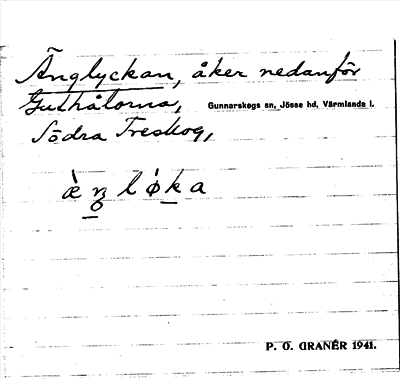 Änglyckan, åker nedanför
Guthålorna, Gunnarskogs sn, Jösse hd, Värmlands l.
Södra Treskog,
æ̀ŋlø̀ka
P. O. GRANÉR 1941.